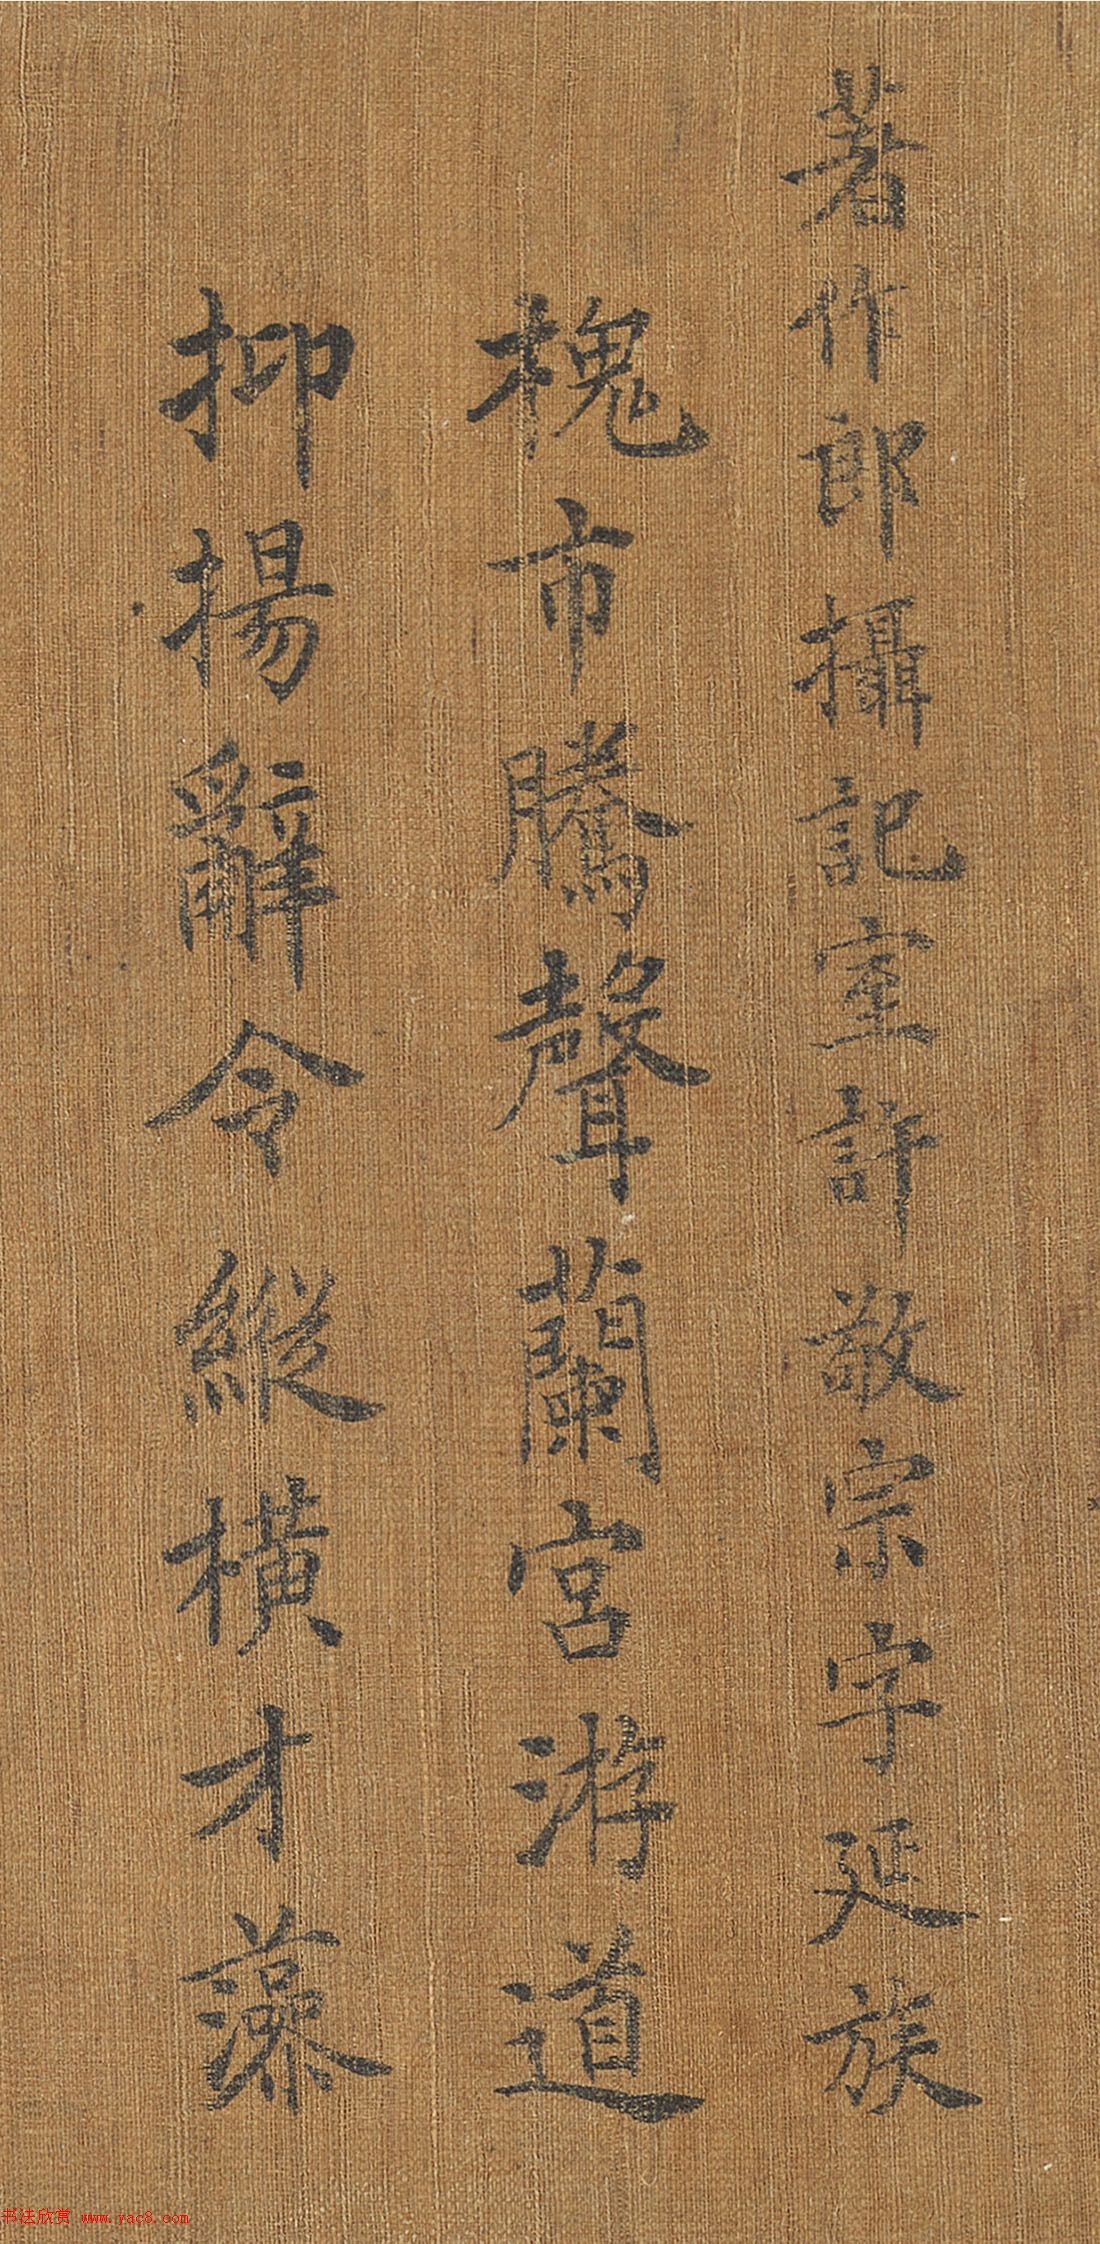 著作郎攝記室許敬宗字延族
槐市騰聲蘭宮游道
抑揚辭令縱橫才藻
书法欣赏 www.yac8.com